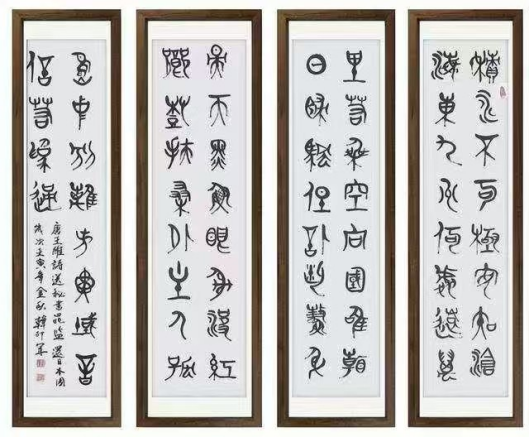 積水不可極安知滄
海東九州何處遠萬
里若乘空向國唯看
日歸帆但信風鰲身
映天黑魚眼射波紅
鄉樹扶桑外主人孤
島中別離方異域音
信若為通
唐王維詩送秘書晁監還日本國
歲次壬寅年金秋韓